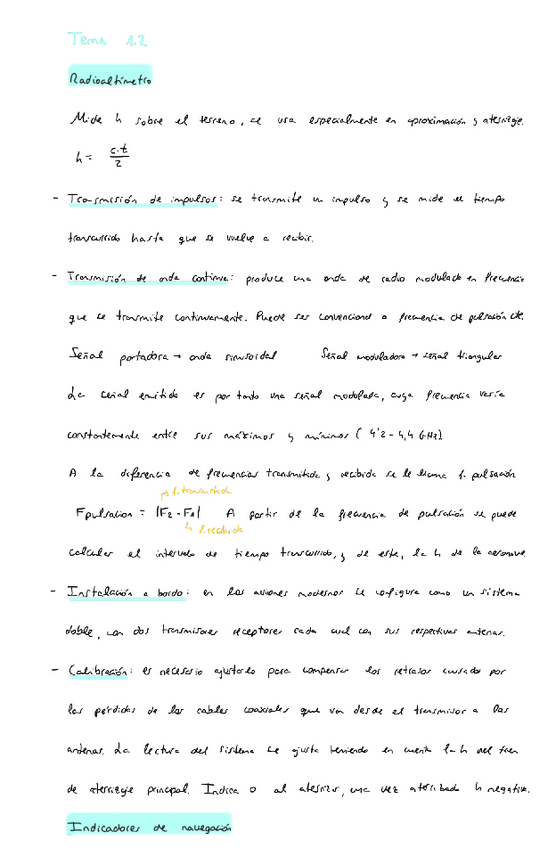 Tema 1.2
Radioaltímetro
Mide h sobre el terreno, se usa especialmente en aproximación y aterrizaje.
h = c·t / 2
- Transmisión de impulsos: se transmite un impulso y se mide el tiempo
transcurrido hasta que se vuelve a recibir.
- Transmisión de onda continua: produce una onda de radio modulada en frecuencia
que se transmite continuamente. Puede ser convencional o frecuencia de pulsación cte.
Señal portadora → onda sinusoidal Señal moduladora → señal triangular
La señal emitida es por tanto una señal modulada, cuya frecuencia varía
constantemente entre sus máximos y mínimos (4'2 - 4,4 GHz)
A la diferencia de frecuencias transmitida y recibida se le llama f. pulsación
f. transmitida
Fpulsacion = |F2 - F1| A partir de la frecuencia de pulsación se puede
f. recibida
calcular el intervalo de tiempo transcurrido, y de este, la h de la aeronave.
- Instalación a bordo: en los aviones modernos se configura como un sistema
doble, con dos transmisores receptores cada cual con sus respectivas antenas.
- Calibración: es necesario ajustarlo para compensar los retrasos causado por
las pérdidas de los cables coaxiales que van desde el transmisor a las
antenas. La lectura del sistema se ajusta teniendo en cuenta la h del tren
de aterrizaje principal. Indica 0 al aterrizar, una vez aterrizado h negativa.
Indicadores de navegación